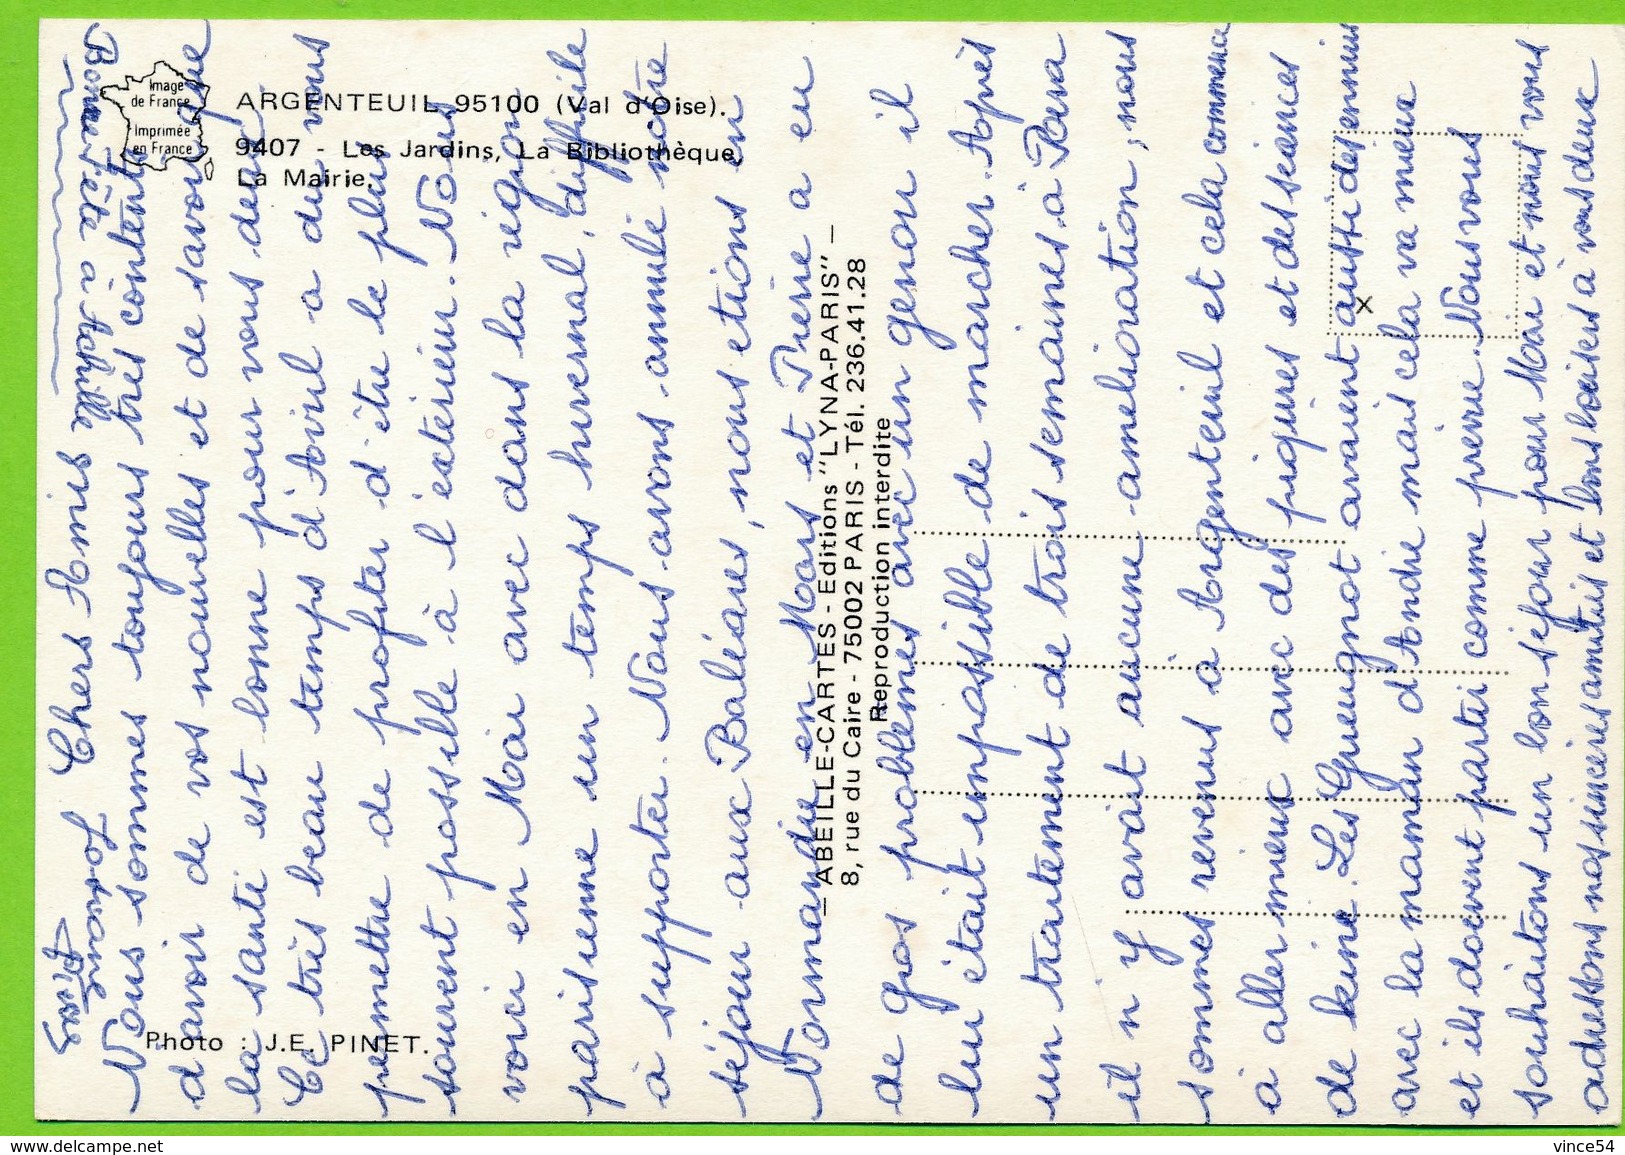 Image
de France
Imprimée
en France
ARGENTEUIL 95100 (Val d'Oise).
9407 - Les Jardins, La Bibliothèque,
La Mairie.
Photo : J.E. PINET.
— ABEILLE-CARTES - Editions "LYNA-PARIS" —
8, rue du Caire - 75002 PARIS - Tél. 236.41.28
Reproduction interdite
x
Bonne fête à Achille
Chers Amis
Nous sommes toujours très contents
d'avoir de vos nouvelles et de savoir que
la santé est bonne pour vous deux
Ce très beau temps d'Avril a du vous
permettre de profiter d'être le plus
souvent possible à l'extérieur. Nous
voici en Mai avec dans la région
parisienne un temps hivernal, difficile
à supporter. Nous avons annulé notre
séjour aux Baléares, nous etions en
Normandie en Mars et Pierre a eu
de gros problèmes avec un genou il
lui était impossible de marcher. Après
un traitement de trois semaines à
il n'y avait aucune amélioration, nous
sommes revenus à Argenteuil et cela commence
à aller mieux avec des piqures et des seances
de kiné. Les Gueugnot avaient aussi des ennuis
avec la maman d'Andre mais cela va mieux
et ils doivent partir comme prévue. Nous vous
souhaitons un bon séjour pour Mai et nous vous
adressons nos sincères amitiés et bons baisers à vous deux
Pierrot
vince54
delcampe.net